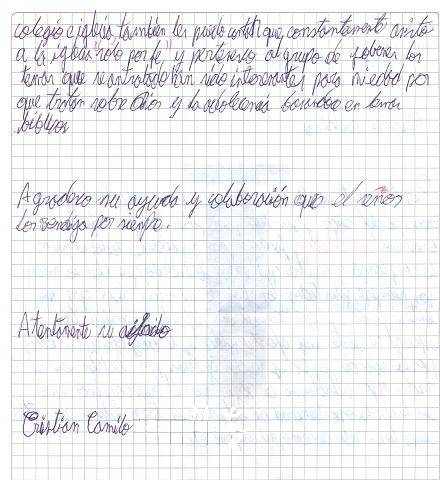 colegio e iglesia, también les puedo contar que, constantemente asisto
a la iglesia "solo por fe" y pertenesco al grupo de jobenes los
temas que se an tratado han sido interesantes para mi edad por
que tratan sobre Dios y la adolecencia basandose en temas
biblicos
Agradesco su ayuda y colaboración que el señor
los bendiga por siempre.
Atentamente su aijado
Cristian Camilo